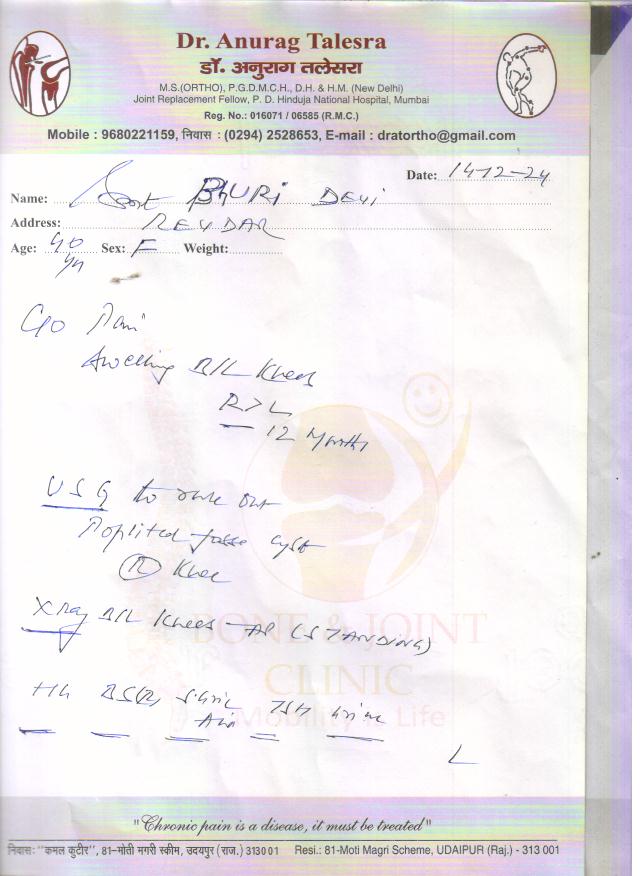 Dr. Anurag Talesra
डॉ. अनुराग तलेसरा
M.S.(ORTHO), P.G.D.M.C.H., D.H. & H.M. (New Delhi)
Joint Replacement Fellow, P. D. Hinduja National Hospital, Mumbai
Reg. No.: 016071 / 06585 (R.M.C.)
Mobile : 9680221159, निवास : (0294) 2528653, E-mail : dratortho@gmail.com
Date: 14-12-24
Name: Smt BHURI DEVI
Address: REVDAR
Age: 40 Sex: F Weight:
yr
C/O Pain
Swelling B/L Knees
R>L
- 12 Months
USG to rule out
Popliteal fossa cyst
(R) Knee
X ray B/L Knees - AP (STANDING)
BONE & JOINT
CLINIC
Mobility is Life
Uric TSH Urine
"Chronic pain is a disease, it must be treated"
निवास: "कमल कुटीर", 81-मोती मगरी स्कीम, उदयपुर (राज.) 313001 Resi.: 81-Moti Magri Scheme, UDAIPUR (Raj.) - 313 001